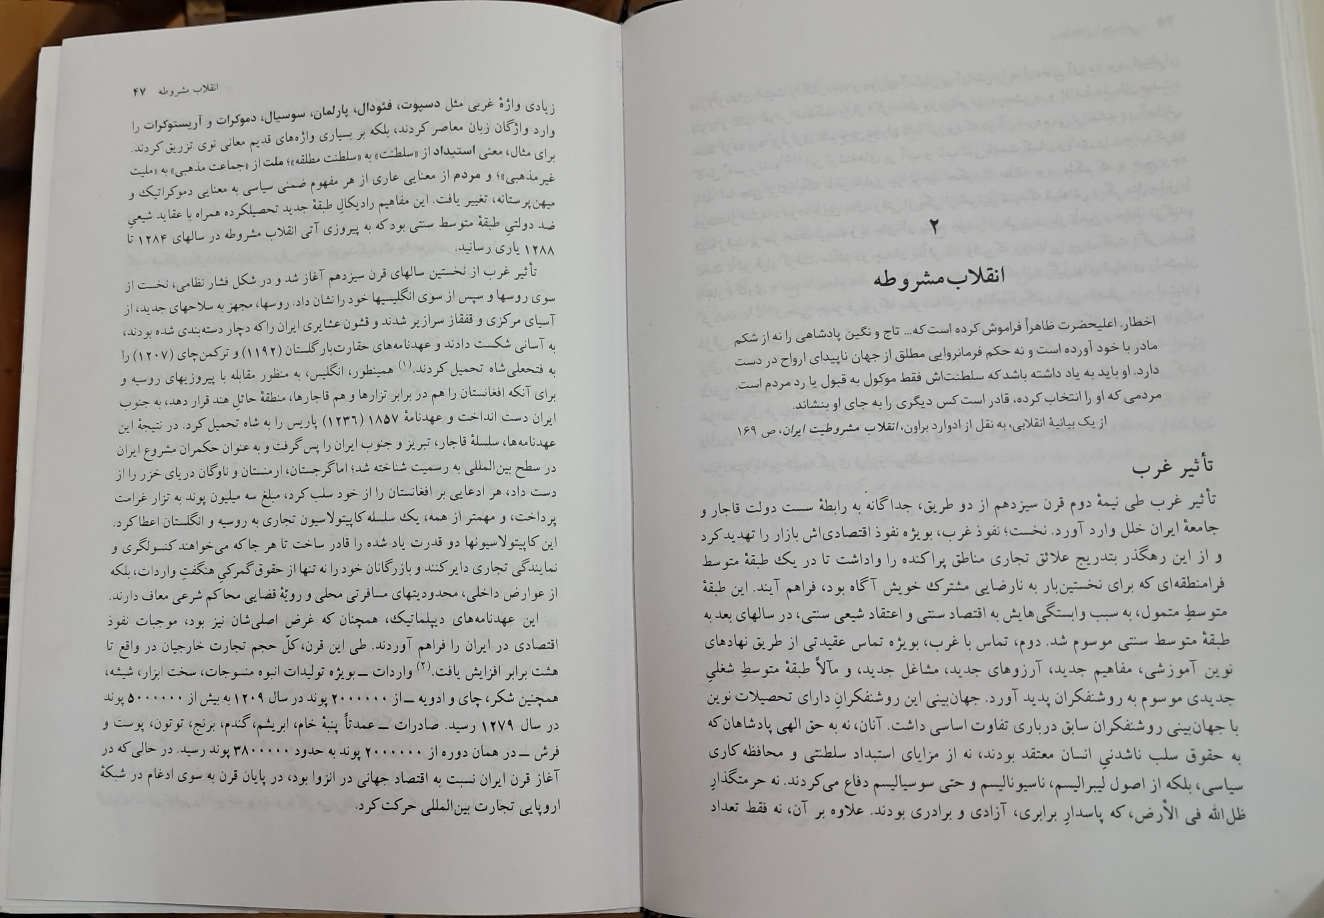 ۲
انقلاب مشروطه
اخطار. اعلیحضرت ظاهراً فراموش کرده است که... تاج و نگین پادشاهی را نه از شکم
مادر با خود آورده است و نه حکم فرمانروایی مطلق از جهان ناپیدای ارواح در دست
دارد. او باید به یاد داشته باشد که سلطنت‌اش فقط موکول به قبول یا رد مردم است.
مردمی که او را انتخاب کرده، قادر است کس دیگری را به جای او بنشاند.
از یک بیانیهٔ انقلابی، به نقل از ادوارد براون، انقلاب مشروطیت ایران، ص ۱۶۹
تأثیر غرب
تأثیر غرب طی نیمهٔ دوم قرن سیزدهم از دو طریق، جداگانه به رابطهٔ سست دولت قاجار و
جامعهٔ ایران خلل وارد آورد. نخست؛ نفوذ غرب، بویژه نفوذ اقتصادی‌اش بازار را تهدید کرد
و از این رهگذر بتدریج علائق تجاری مناطق پراکنده را واداشت تا در یک طبقهٔ متوسط
فرامنطقه‌ای که برای نخستین‌بار به نارضایی مشترک خویش آگاه بود، فراهم آیند. این طبقهٔ
متوسطِ متمول، به سبب وابستگی‌هایش به اقتصاد سنتی و اعتقاد شیعی سنتی، در سالهای بعد به
طبقهٔ متوسط سنتی موسوم شد. دوم، تماس با غرب، بویژه تماس عقیدتی از طریق نهادهای
نوین آموزشی، مفاهیم جدید، آرزوهای جدید، مشاغل جدید، و مآلاً طبقهٔ متوسطِ شغلیِ
جدیدی موسوم به روشنفکران پدید آورد. جهان‌بینی این روشنفکرانِ دارای تحصیلات نوین
با جهان‌بینی روشنفکران سابق درباری تفاوت اساسی داشت. آنان، نه به حق الهی پادشاهان که
به حقوق سلب ناشدنیِ انسان معتقد بودند، نه از مزایای استبداد سلطنتی و محافظه‌کاری
سیاسی، بلکه از اصول لیبرالیسم، ناسیونالیسم و حتی سوسیالیسم دفاع می‌کردند. نه حرمتگذارِ
ظل‌الله فی الأرض، که پاسدارِ برابری، آزادی و برادری بودند. علاوه بر آن، نه فقط تعداد
انقلاب مشروطه ۴۷
زیادی واژهٔ غربی مثل دسپوت، فئودال، پارلمان، سوسیال، دموکرات و آریستوکرات را
وارد واژگان زبان معاصر کردند، بلکه بر بسیاری واژه‌های قدیم معانی نوی تزریق کردند.
برای مثال، معنی استبداد از «سلطنت» به «سلطنت مطلقه»؛ ملت از «جماعت مذهبی» به «ملیت
غیرمذهبی»؛ و مردم از معنایی عاری از هر مفهوم ضمنی سیاسی به معنایی دموکراتیک و
میهن‌پرستانه، تغییر یافت. این مفاهیم رادیکالِ طبقهٔ جدید تحصیلکرده همراه با عقاید شیعیِ
ضد دولتیِ طبقهٔ متوسط سنتی بود که به پیروزی آتی انقلاب مشروطه در سالهای ۱۲۸۴ تا
۱۲۸۸ یاری رسانید.
تأثیر غرب از نخستین سالهای قرن سیزدهم آغاز شد و در شکل فشار نظامی، نخست از
سوی روسها و سپس از سوی انگلیسیها خود را نشان داد. روسها، مجهز به سلاحهای جدید، از
آسیای مرکزی و قفقاز سرازیر شدند و قشون عشایری ایران را که دچار دسته‌بندی شده بودند،
به آسانی شکست دادند و عهدنامه‌های حقارت‌بار گلستان (۱۱۹۲) و ترکمن‌چای (۱۲۰۷) را
به فتحعلی‌شاه تحمیل کردند.(۱) همینطور، انگلیس، به منظور مقابله با پیروزیهای روسیه و
برای آنکه افغانستان را هم در برابر تزارها و هم قاجارها، منطقهٔ حائلِ هند قرار دهد، به جنوب
ایران دست انداخت و عهدنامهٔ ۱۸۵۷ (۱۲۳۶) پاریس را به شاه تحمیل کرد. در نتیجهٔ این
عهدنامه‌ها، سلسلهٔ قاجار، تبریز و جنوب ایران را پس گرفت و به عنوان حکمران مشروع ایران
در سطح بین‌المللی به رسمیت شناخته شد؛ اما گرجستان، ارمنستان و ناوگان دریای خزر را از
دست داد، هر ادعایی بر افغانستان را از خود سلب کرد، مبلغ سه میلیون پوند به تزار غرامت
پرداخت، و مهمتر از همه، یک سلسله کاپیتولاسیون تجاری به روسیه و انگلستان اعطا کرد.
این کاپیتولاسیونها دو قدرت یاد شده را قادر ساخت تا هر جا که می‌خواهند کنسولگری و
نمایندگی تجاری دایر کنند و بازرگانان خود را نه تنها از حقوق گمرکیِ هنگفتِ واردات، بلکه
از عوارض داخلی، محدودیتهای مسافرتی محلی و رویّهٔ قضایی محاکم شرعی معاف دارند.
این عهدنامه‌های دیپلماتیک، همچنان که غرض اصلی‌شان نیز بود، موجبات نفوذ
اقتصادی در ایران را فراهم آوردند. طی این قرن، کلّ حجم تجارت خارجیان در واقع تا
هشت برابر افزایش یافت.(۲) واردات ــ بویژه تولیدات انبوه منسوجات، سخت ابزار، شیشه،
همچنین شکر، چای و ادویه ــ از ۲۰۰۰۰۰۰ پوند در سال ۱۲۰۹ به بیش از ۵۰۰۰۰۰۰ پوند
در سال ۱۲۷۹ رسید. صادرات ــ عمدتاً پنبهٔ خام، ابریشم، گندم، برنج، توتون، پوست و
فرش ــ در همان دوره از ۲۰۰۰۰۰۰ پوند به حدود ۳۸۰۰۰۰۰ پوند رسید. در حالی که در
آغاز قرن ایران نسبت به اقتصاد جهانی در انزوا بود، در پایان قرن به سوی ادغام در شبکهٔ
اروپایی تجارت بین‌المللی حرکت کرد.